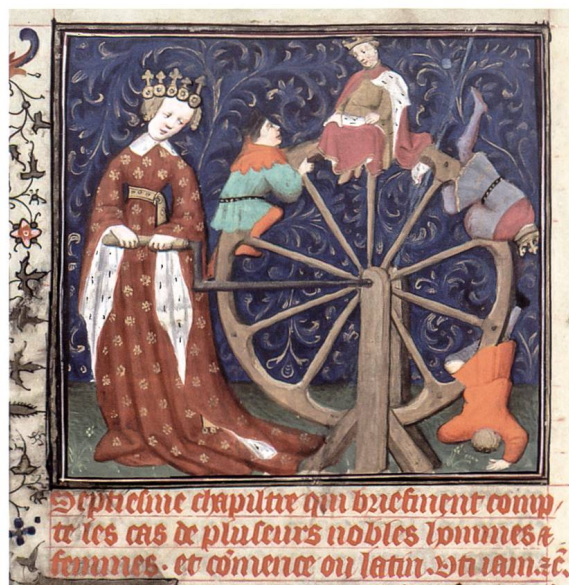 Septiesme chapiltre qui briefment comp/
te les cas de pluseurs nobles hommes &
femmes. et cōmence ou latin. Vti iam &c̄.